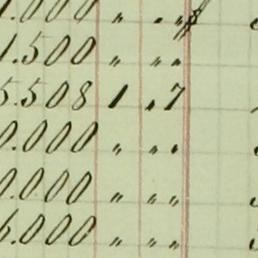 .000 " . "
1.500 " "
5.508 1 . 7
0.000 " "
0.000 " "
6.000 " "